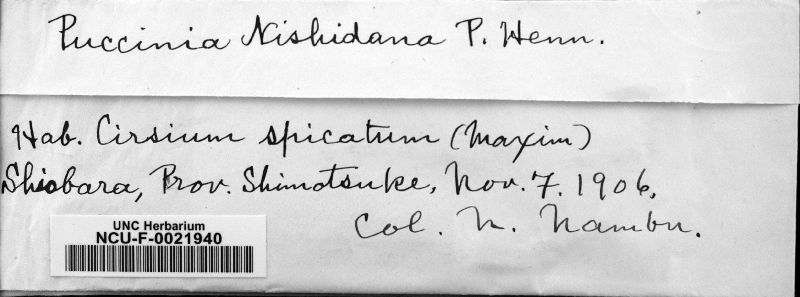 Puccinia Nishidana P. Henn.
Hab. Cirsium spicatum (Maxim)
Shiobara, Prov. Shimotsuke, Nov. 7. 1906.
Col. N. Nambu.
UNC Herbarium
NCU-F-0021940